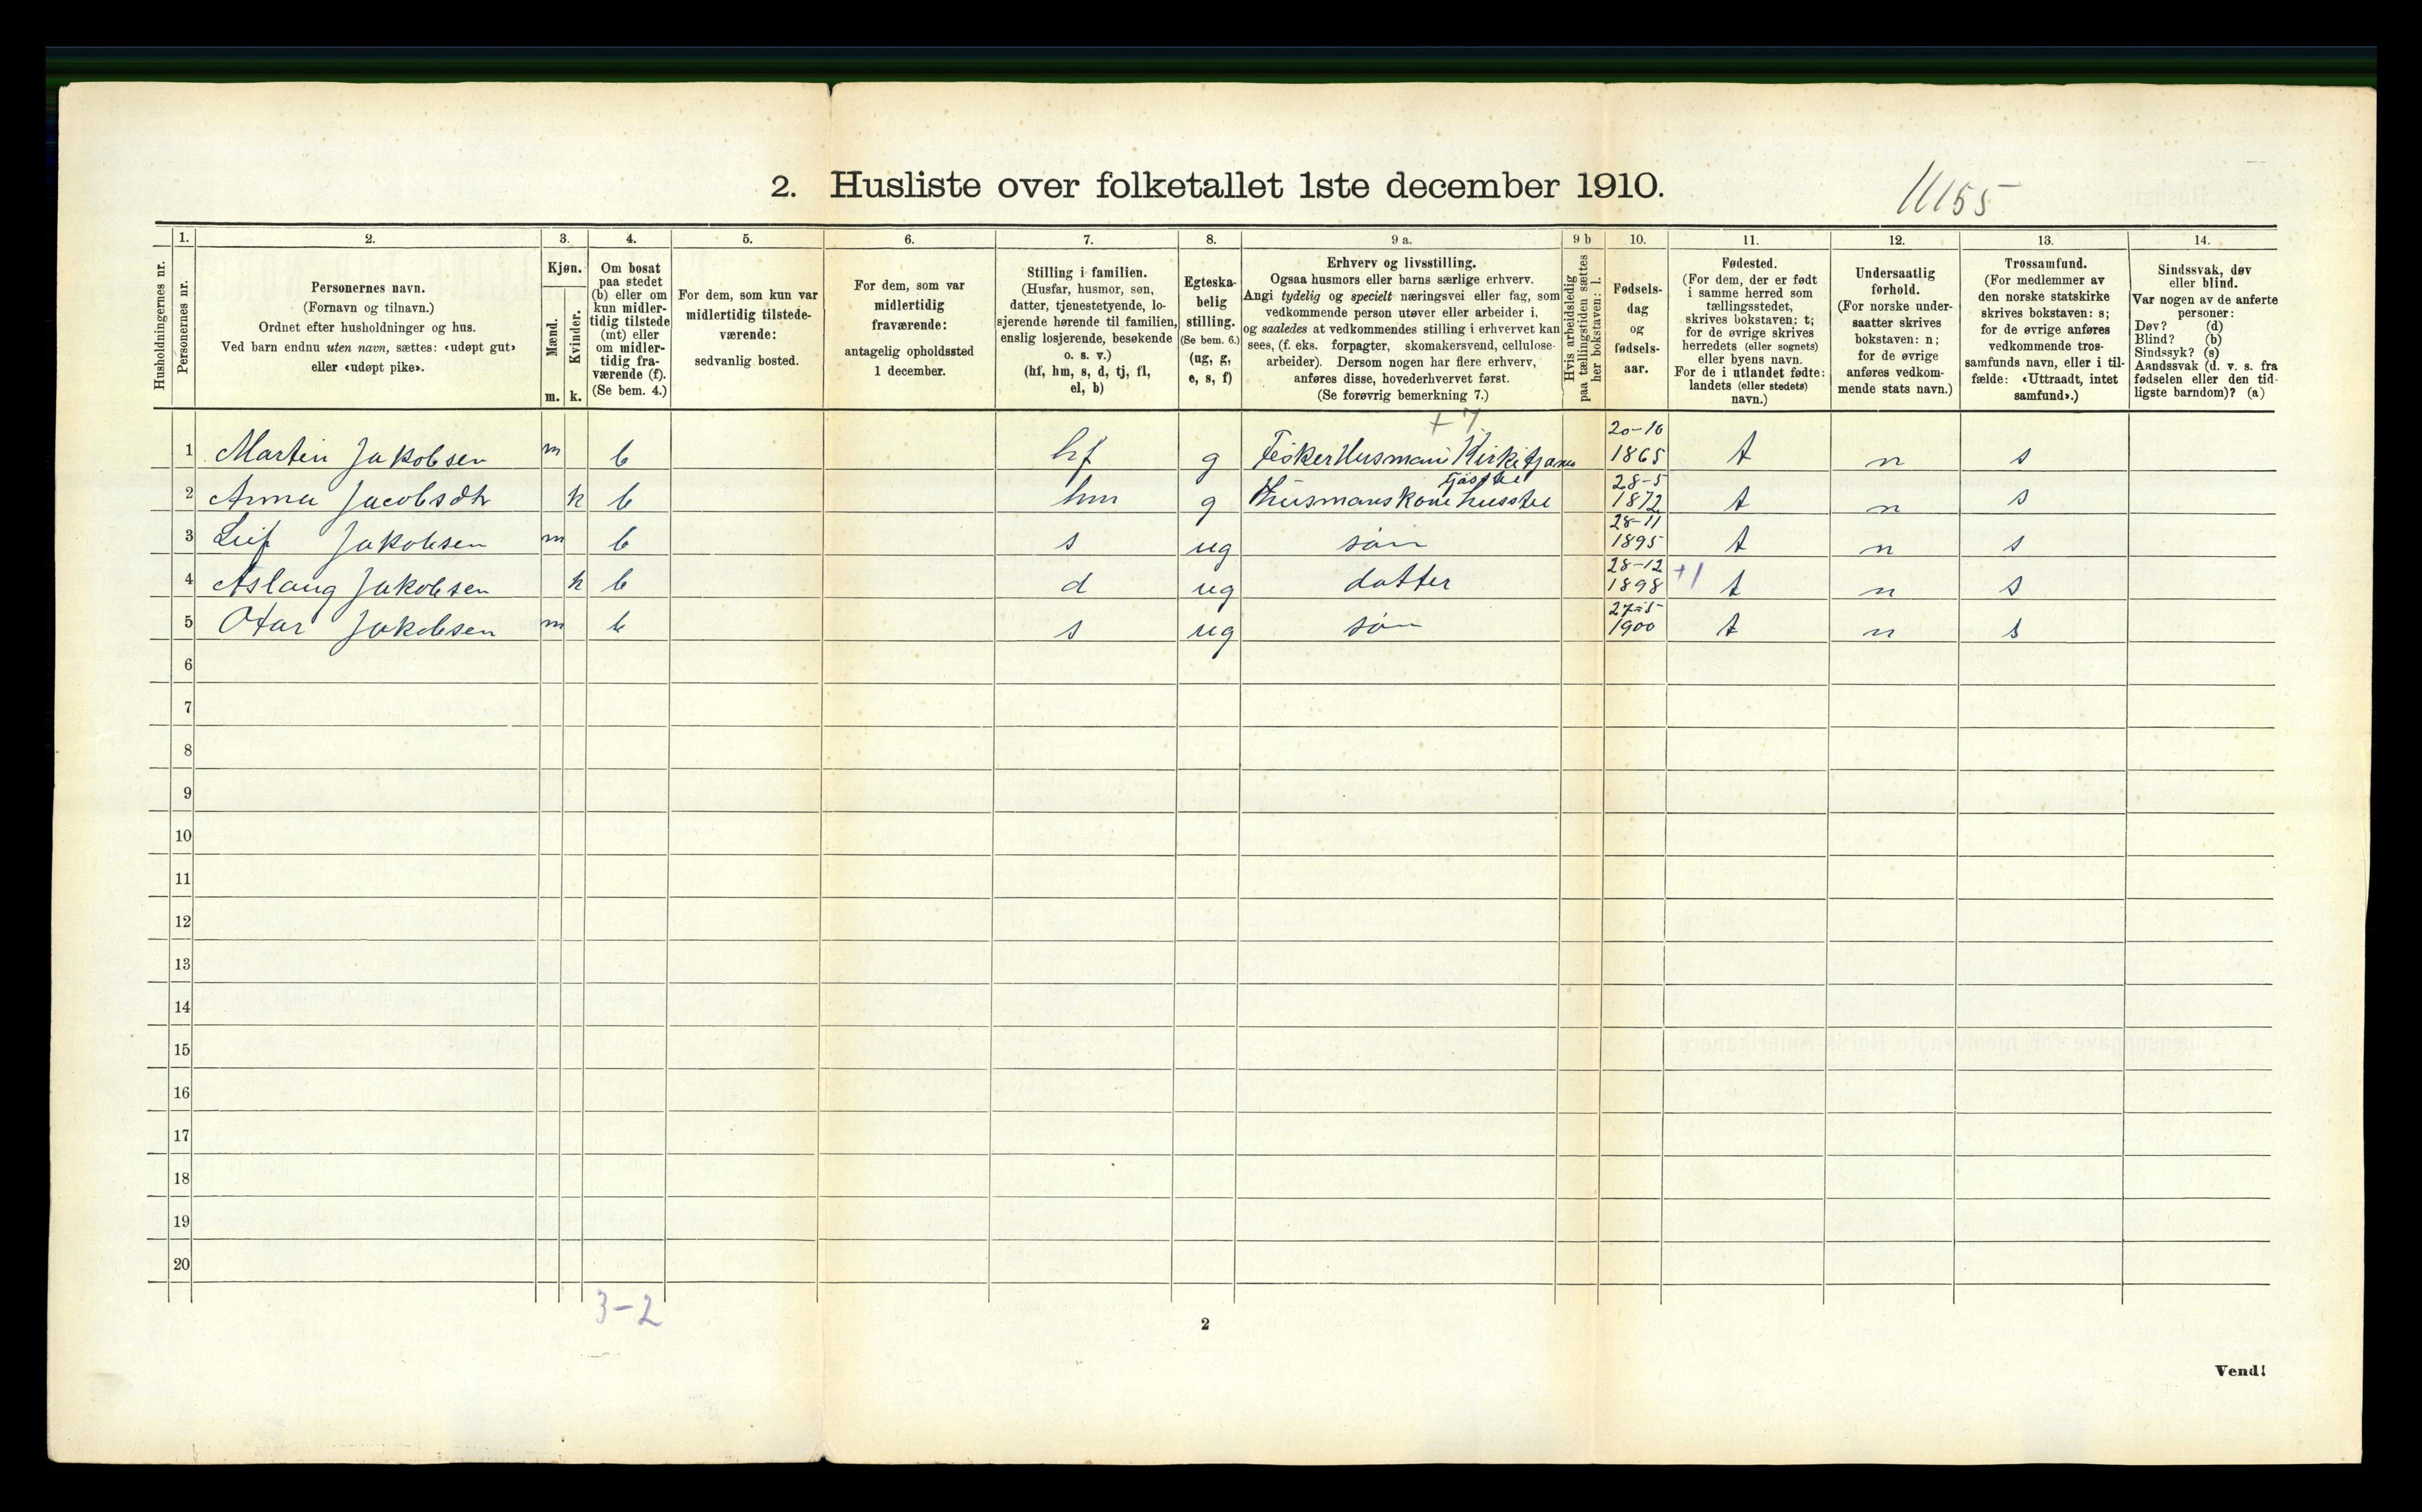 2. Husliste over folketallet 1ste december 1910.
1. 2. 3. 4. 5. 6. 7. 8. 9 a. 9 b 10. 11. 12. 13. 14.
Husholdningernes nr.
Personernes nr.
Personernes navn.
(Fornavn og tilnavn.)
Ordnet efter husholdninger og hus.
Ved barn endnu uten navn, sættes: «udøpt gut»
eller «udøpt pike».
Kjøn.
Mænd.
Kvinder.
m. k.
Om bosat
paa stedet
(b) eller om
kun midler-
tidig tilstede
(mt) eller
om midler-
tidig fra-
værende (f).
(Se bem. 4.)
For dem, som kun var
midlertidig tilstede-
værende:
sedvanlig bosted.
For dem, som var
midlertidig
fraværende:
antagelig opholdssted
1 december.
Stilling i familien.
(Husfar, husmor, søn,
datter, tjenestetyende, lo-
sjerende hørende til familien,
enslig losjerende, besøkende
o. s. v.)
(hf, hm, s, d, tj, fl,
el, b)
Egteska-
belig
stilling.
(Se bem. 6.)
(ug, g,
e, s, f)
Erhverv og livsstilling.
Ogsaa husmors eller barns særlige erhverv.
Angi tydelig og specielt næringsvei eller fag, som
vedkommende person utøver eller arbeider i,
og saaledes at vedkommendes stilling i erhvervet kan
sees, (f. eks. forpagter, skomakersvend, cellulose-
arbeider). Dersom nogen har flere erhverv,
anføres disse, hovederhvervet først.
(Se forøvrig bemerkning 7.)
Hvis arbeidsledig
paa tællingstiden sættes
her bokstaven: l.
Fødsels-
dag
og
fødsels-
aar.
Fødested.
(For dem, der er født
i samme herred som
tællingsstedet,
skrives bokstaven: t;
for de øvrige skrives
herredets (eller sognets)
eller byens navn.
For de i utlandet fødte:
landets (eller stedets)
navn.)
Undersaatlig
forhold.
(For norske under-
saatter skrives
bokstaven: n;
for de øvrige
anføres vedkom-
mende stats navn.)
Trossamfund.
(For medlemmer av
den norske statskirke
skrives bokstaven: s;
for de øvrige anføres
vedkommende tros-
samfunds navn, eller i til-
fælde: «Uttraadt, intet
samfund».)
Sindssvak, døv
eller blind.
Var nogen av de anførte
personer:
Døv? (d)
Blind? (b)
Sindssyk? (s)
Aandssvak (d. v. s. fra
fødselen eller den tid-
ligste barndom)? (a)
+ 7
1 Martin Jakobsen m b hf g Fisker Husmann 20-10 1865 t n s
2 Anna Jacobsdtr k b hm g Husmanskone 28-5 1872 t n s
3 Leif Jakobsen m b s ug søn 28-11 1895 t n s
4 Aslaug Jakobsen k b d ug datter 28-12 1898 +1 t n s
5 Otar Jakobsen m b s ug søn 27-5 1900 t n s
6
7
8
9
10
11
12
13
14
15
16
17
18
19
20
3-2
2
Vend!